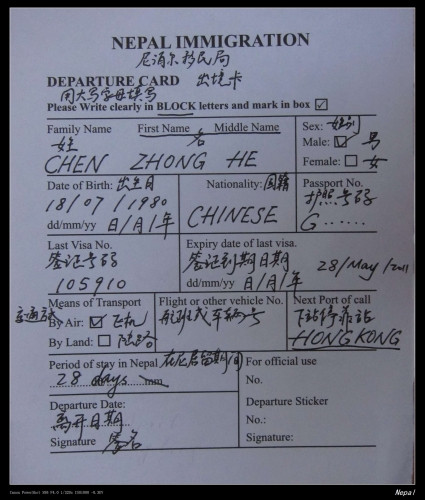 NEPAL IMMIGRATION
尼泊尔移民局
DEPARTURE CARD 出境卡
用大写字母填写
Please Write clearly in BLOCK letters and mark in box ☑
Family Name First Name Middle Name
姓 名
CHEN ZHONG HE
Sex: 性别
Male: ☑ 男
Female: ☐ 女
Date of Birth: 出生日
18/07/1980
dd/mm/yy 日/月/年
Nationality: 国籍
CHINESE
Passport No.
护照号码
G......
Last Visa No.
签证号码
105910
Expiry date of last visa.
签证到期日期
28/May/2011
dd/mm/yy 日/月/年
Means of Transport
交通方式
By Air: ☑ 飞机
By Land: ☐ 陆路
Flight or other vehicle No.
航班或车辆号
Next Port of call
下站停靠站
HONGKONG
Period of stay in Nepal 在尼居留期间
28 days
Departure Date:
离开日期
Signature 签名
For official use
No.
Departure Sticker
No.:
Signature:
Nepal